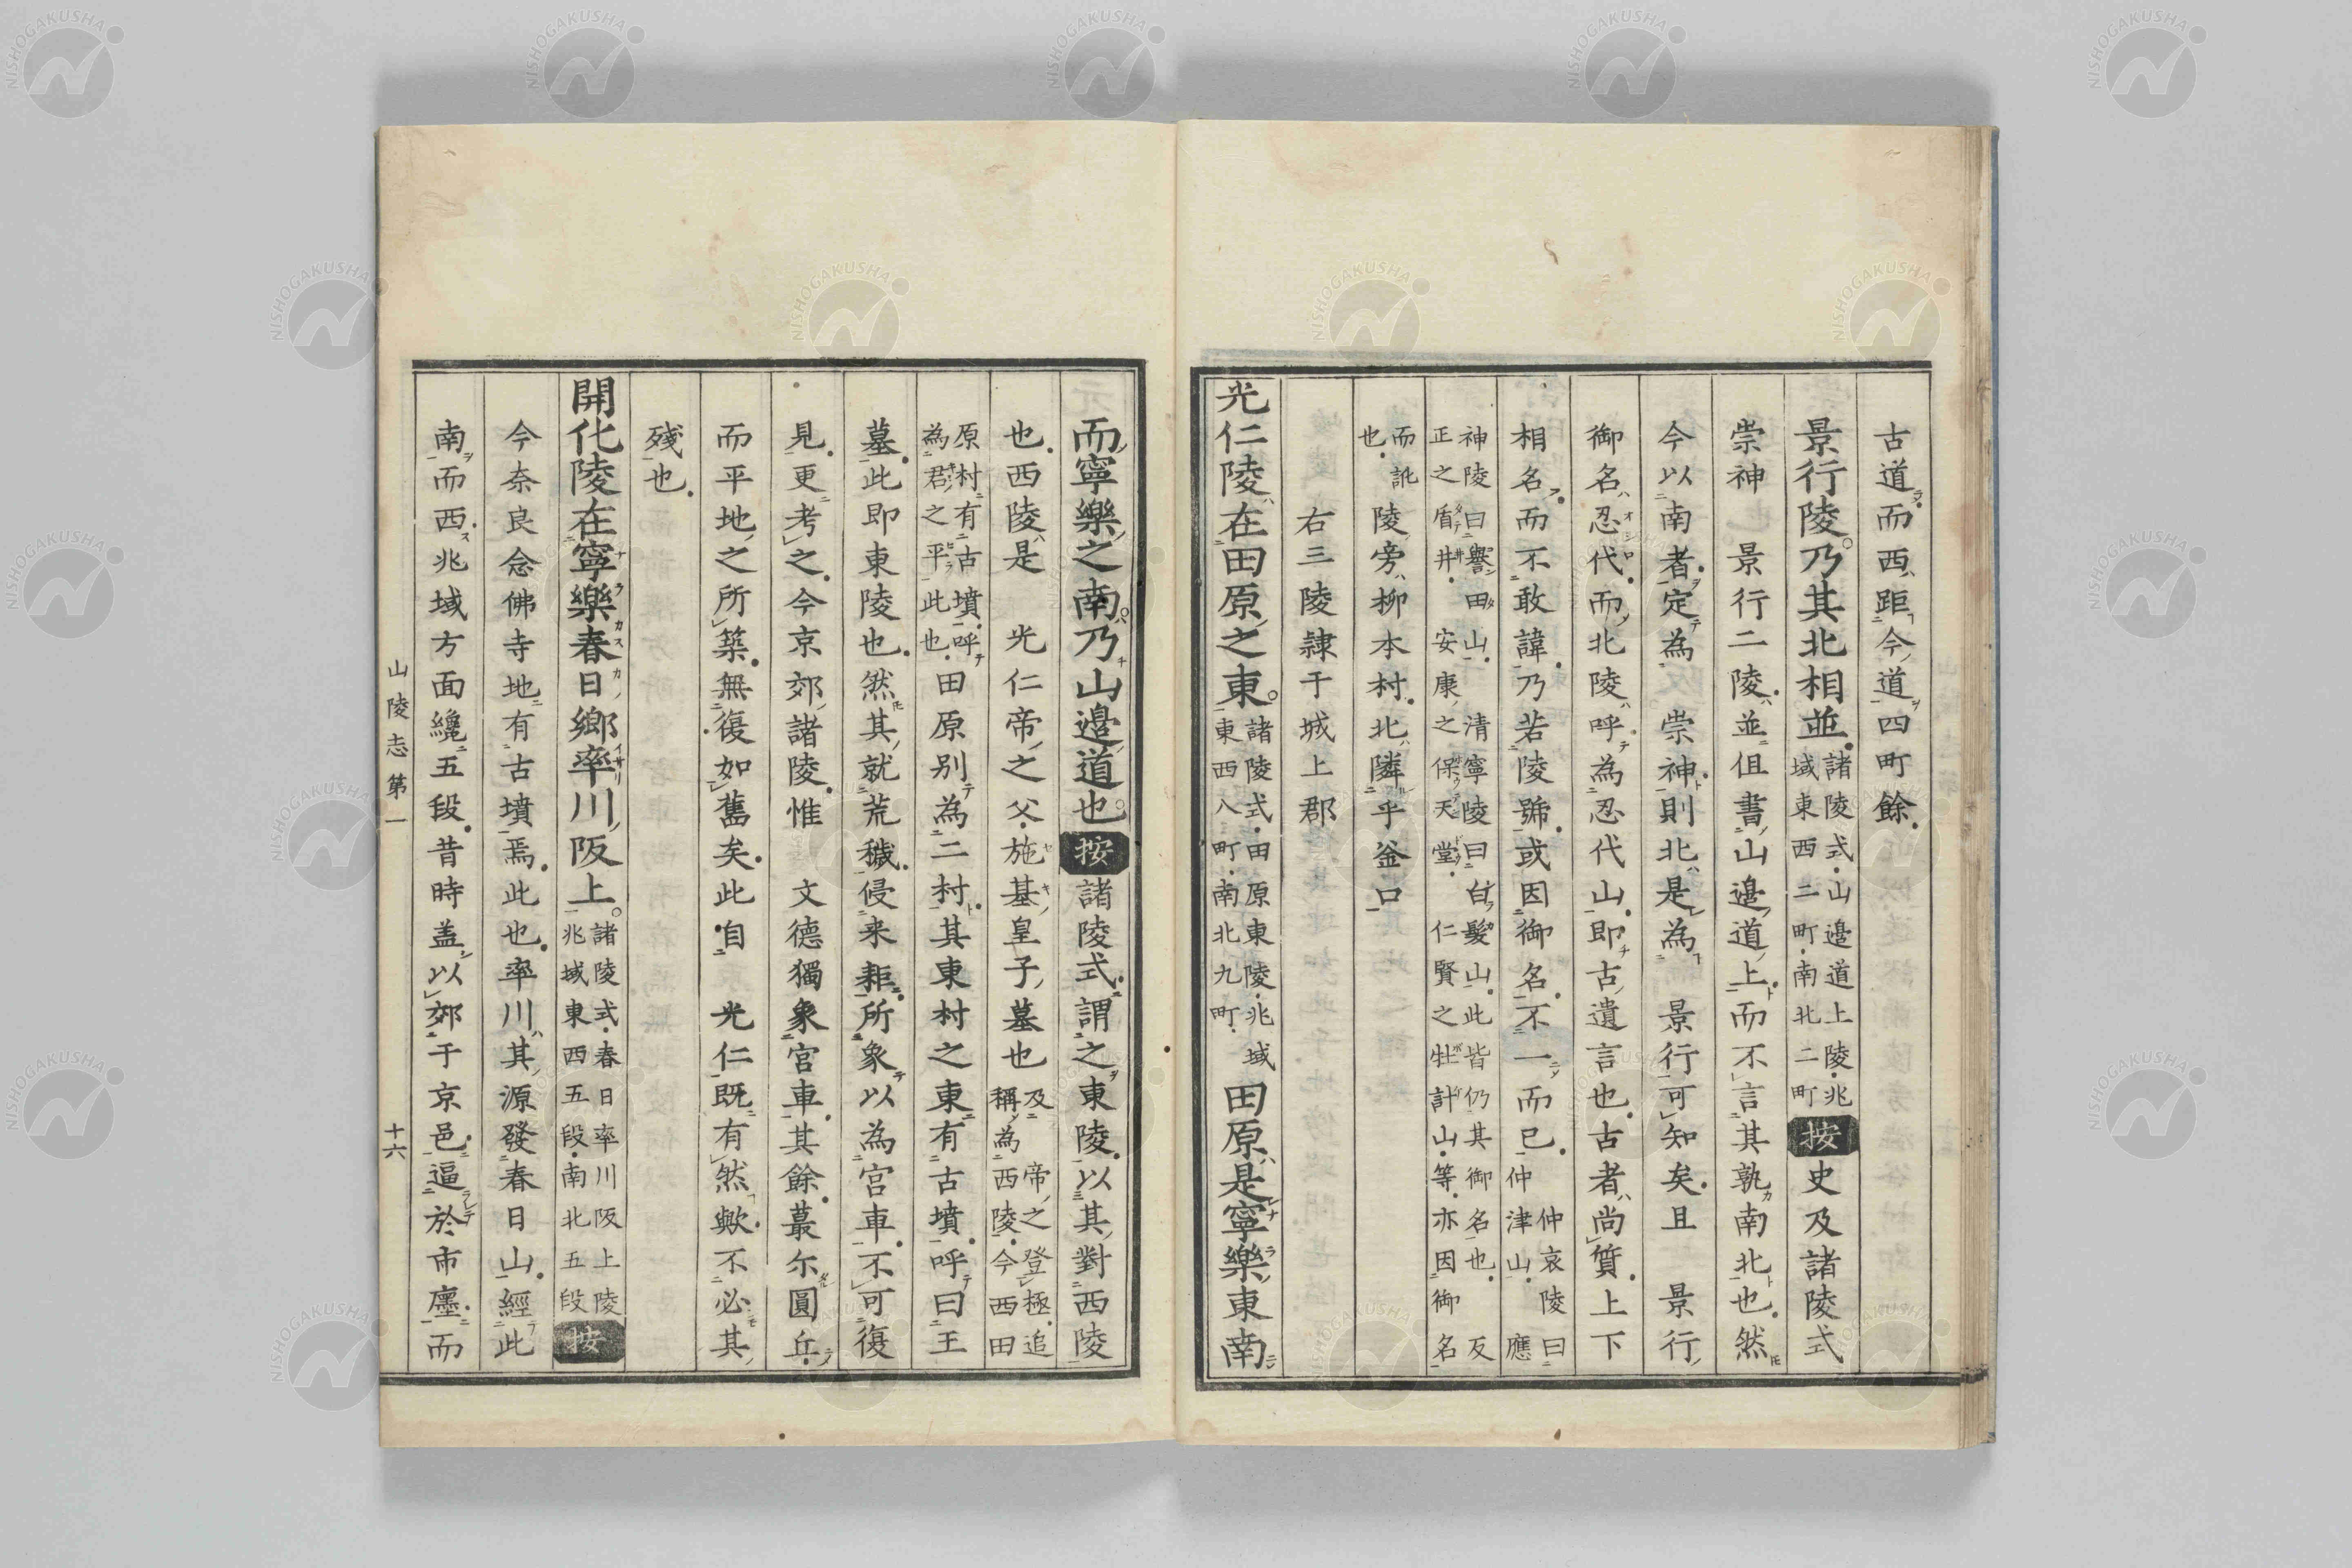 古道而西距今道四町餘
景行陵乃其北相並諸陵式山邉道上陵兆域東西二町南北二町按史及諸陵式
崇神 景行二陵並但書山邉道上而不言其孰南北也然
今以南者定為 崇神則北是為 景行可知矣且 景行
御名忍代而北陵呼為忍代山即古遺言也古者尚質上下
相名而不敢諱乃若陵號或因御名不一而已仲哀陵曰仲津山應
神陵曰譽田山 清寧陵曰白髮山此皆仍其御名也 反正之盾井 安康之保天堂 仁賢之牡計山等亦因御名
而訛也陵旁柳本村北隣乎釜口
右三陵隷于城上郡
光仁陵在田原之東諸陵式田原東陵兆域東西八町南北九町田原是寧樂東南
而寧樂之南乃山邉道也按諸陵式謂之東陵以其對西陵
也西陵是 光仁帝之父施基皇子墓也及 帝之登極追稱為西陵今西田
原村有古墳呼為君之平此也田原別為二村其東村之東有古墳呼曰王
墓此即東陵也然其就荒穢侵来耟所象以為宮車不可復
見更考之今京郊諸陵惟 文德獨象宮車其餘蕞尓圓丘
而平地之所築無復如舊矣此自 光仁既有然歟不必其
殘也
開化陵在寧樂春日鄉率川阪上諸陵式春日率川阪上陵兆域東西五段南北五段按
今奈良念佛寺地有古墳焉此也率川其源發春日山經此
南而西兆域方面纔五段昔時盖以郊于京邑逼於市廛而
山陵志第一
十六
NISHOGAKUSHA